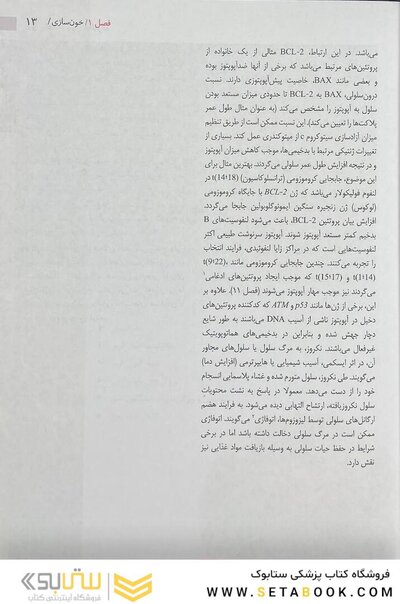 فصل ۱/ خون‌سازی/ ۱۳
می‌باشد. در این ارتباط، BCL-2 مثالی از یک خانواده از
پروتئین‌های مرتبط می‌باشد که برخی از آنها ضدآپوپتوز بوده
و بعضی مانند BAX، خاصیت پیش‌آپوپتوزی دارند. نسبت
درون‌سلولی، BAX به BCL-2 تا حدودی میزان مستعد بودن
سلول به آپوپتوز را مشخص می‌کند (به عنوان مثال طول عمر
پلاکت‌ها را تعیین می‌کند) این نسبت ممکن است از طریق تنظیم
میزان آزادسازی سیتوکروم c از میتوکندری عمل کند. بسیاری از
تغییرات ژنتیکی مرتبط با بدخیمی‌ها، موجب کاهش میزان آپوپتوز
و در نتیجه افزایش طول عمر سلولی می‌گردند. بهترین مثال برای
این موضوع، جابجایی کروموزومی (ترانسلوکاسیون) t(14؛18) در
لنفوم فولیکولار می‌باشد که ژن BCL-2 با جایگاه کروموزومی
(لوکوس) ژن زنجیره سنگین ایمونوگلوبولین جابجا می‌گردد.
افزایش بیان پروتئین BCL-2، باعث می‌شود لنفوسیت‌های B
بدخیم کمتر مستعد آپوپتوز شوند. آپوپتوز سرنوشت طبیعی اکثر
لنفوسیت‌هایی است که در مراکز زایا لنفوئیدی، فرایند انتخاب
را تجربه می‌کنند. چندین جابجایی کروموزومی مانند t(9؛22)،
t(1؛14) و t(15؛17) که موجب ایجاد پروتئین‌های ادغامی۱
می‌گردند نیز موجب مهار آپوپتوز می‌شوند (فصل ۱۱). علاوه بر
این، برخی از ژن‌ها مانند p53 و ATM که کدکننده پروتئین‌های
دخیل در آپوپتوز ناشی از آسیب DNA می‌باشند به طور شایع
دچار جهش شده و بنابراین در بدخیمی‌های هماتوپویتیک
غیرفعال می‌باشند. نکروز، به مرگ سلول یا سلول‌های مجاور
آن، در اثر ایسکمی، آسیب شیمیایی یا هایپرترمی (افزایش دما)
می‌گویند. طی نکروز، سلول متورم شده و غشاء پلاسمایی انسجام
خود را از دست می‌دهد. معمولا در پاسخ به نشت محتویات
سلول نکروزیافته، ارتشاح التهابی دیده می‌شود. به فرایند هضم
ارگانل‌های سلولی توسط لیزوزوم‌ها، اتوفاژی۲ می‌گویند. اتوفاژی
ممکن است در مرگ سلولی دخالت داشته باشد اما در برخی
شرایط در حفظ حیات سلولی به وسیله بازیافت مواد غذایی نیز
نقش دارد.
فروشگاه کتاب پزشکی ستابوک
WWW.SETABOOK.COM
ستابوک
فروشگاه اینترنتی کتاب